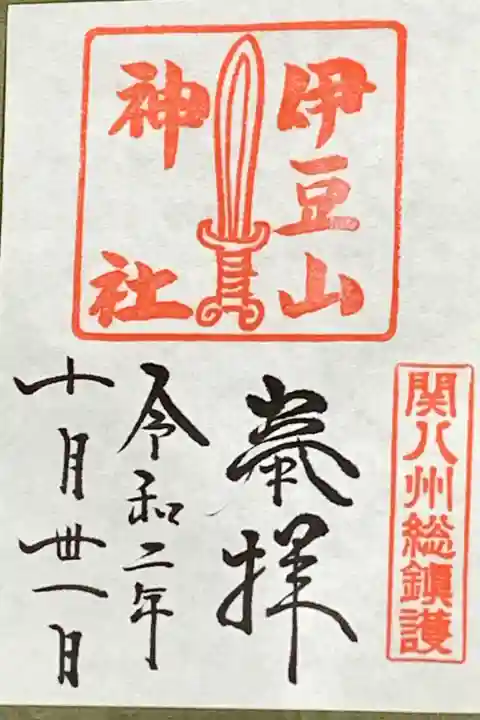 伊豆山
神社
関八州総鎮護
奉拝
令和二年
十月丗一日